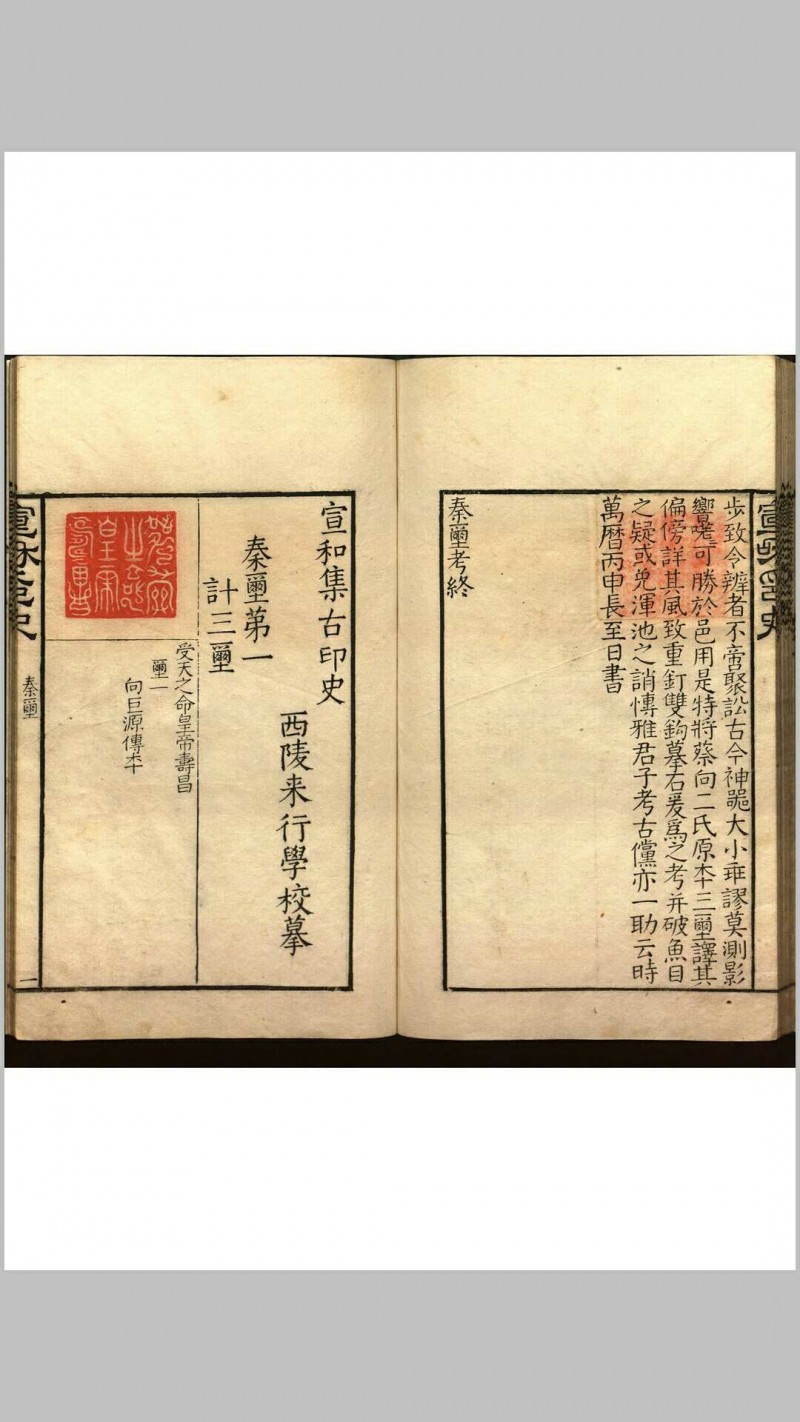 步致令辨者不啻聚訟古今神噐大小乖謬莫測影
響嘵可勝於邑用是特將蔡向二氏原本三璽譯其
偏傍詳其風致重釘雙鉤摹右爰爲之考并破魚目
之疑或免渾池之誚慱雅君子考古儻亦一助云時
萬曆丙申長至日書
秦璽考終
宣和集古印史
西陵来行學校摹
秦璽第一
計三璽
受天之命皇帝壽昌
璽一
向巨源傳本
秦璽
一